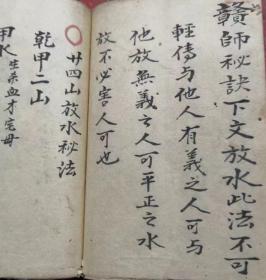 贛師秘訣下文放水此法不可
輕傳与他人有義之人可与
他放無義之人可平正之水
放不必害人可也
廿四山放水秘法
乾甲二山
甲水生来血才宅母